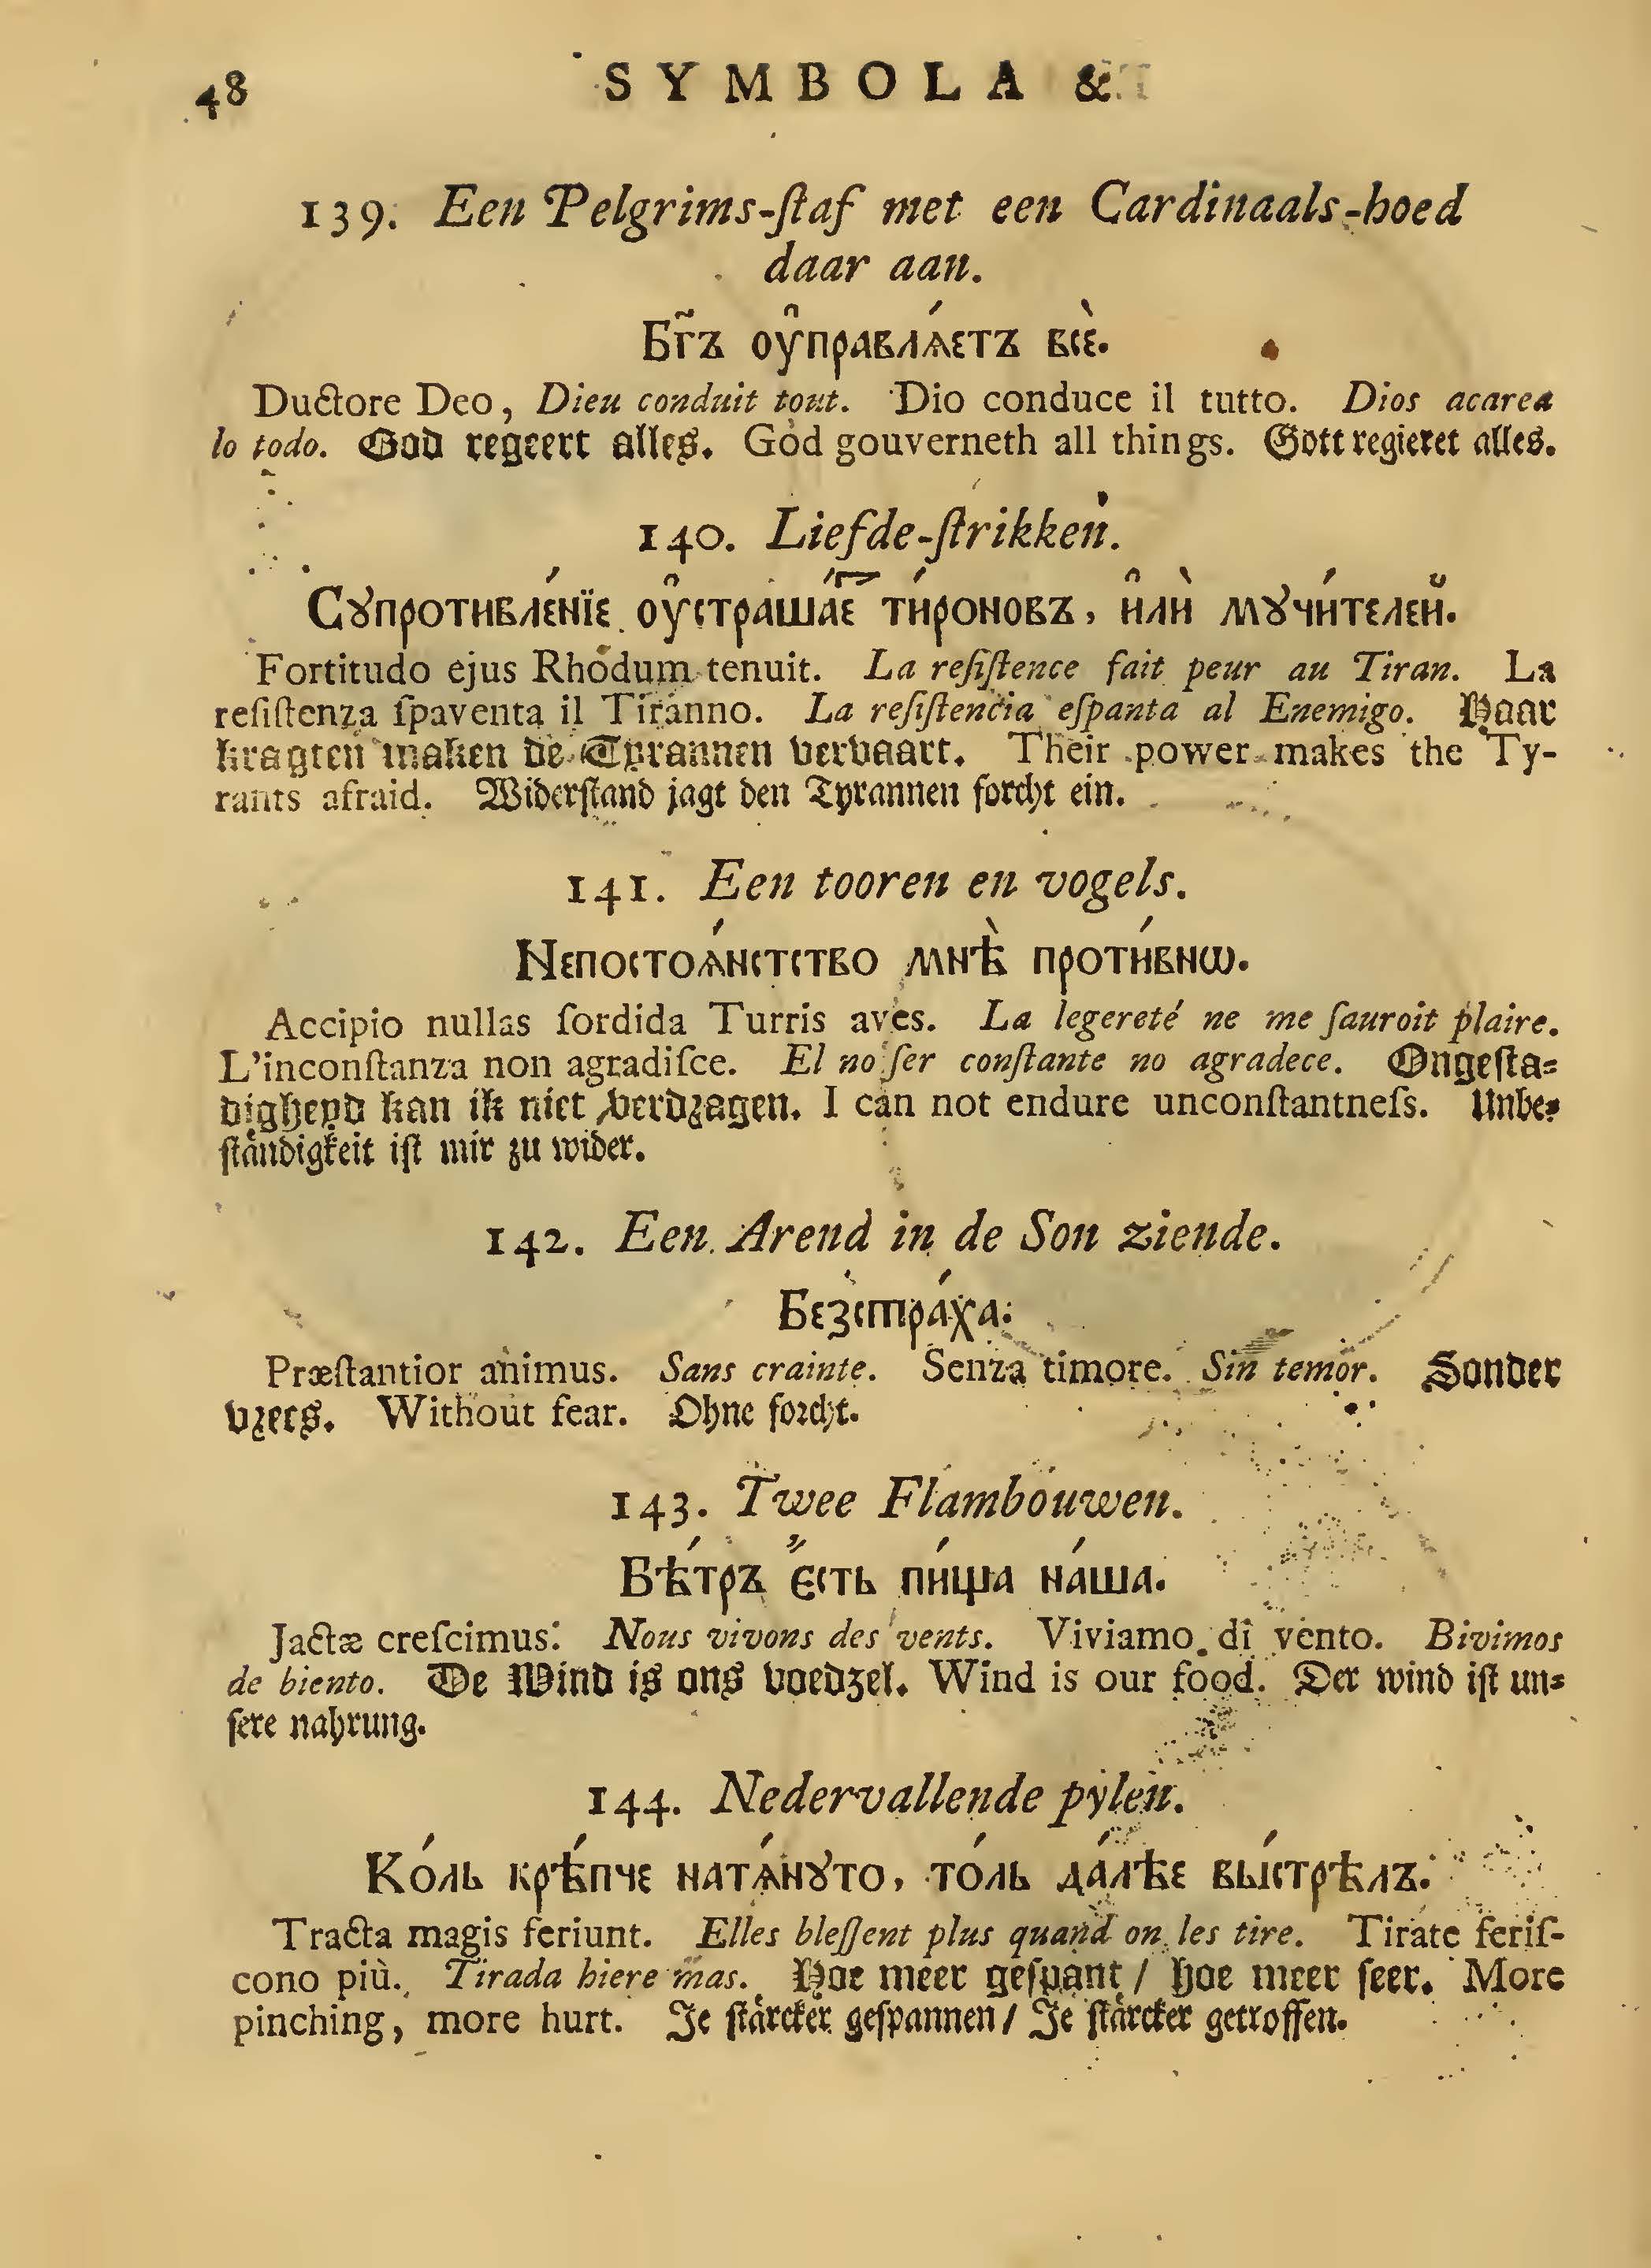 48 SYMBOLA &
139. Een Pelgrims-ſtaf met een Cardinaals-hoed
daar aan.
Бг҃ъ оу҆правлѧ́етъ всѐ.
Ductore Deo, Dieu conduit tout. Dio conduce il tutto. Dios acarea
lo todo. God regeert alles. God gouverneth all things. Gott regieret alles.
140. Liefde-ſtrikken.
Сꙋпротивле́нїе оу҆страша́е ти́роновъ, и҆лѝ мꙋчи́телей.
Fortitudo ejus Rhodum tenuit. La reſiſtence fait peur au Tiran. La
reſiſtenza ſpaventa il Tiranno. La reſiſtencia eſpanta al Enemigo. Haar
kragten maken de Tyrannen vervaart. Their power makes the Ty-
rants afraid. Widerſtand jagt den Tyrannen forcht ein.
141. Een tooren en vogels.
Непостоѧ́нстство мнѣ̀ проти́внѡ.
Accipio nullas ſordida Turris aves. La legereté ne me ſauroit plaire.
L'inconſtanza non agradiſce. El no ſer conſtante no agradece. Ongeſta-
digheyd kan ik niet verdꝛagen. I can not endure unconſtantneſs. Unbe-
ſtändigkeit iſt mir zu wider.
142. Een Arend in de Son ziende.
Безстра́ха:
Præſtantior animus. Sans crainte. Senza timore. Sin temor. Sonder
vꝛees. Without fear. Ohne foꝛcht.
143. Twee Flambouwen.
Вѣ́тръ є҆́сть пи́ща на́ша.
Jactæ creſcimus. Nous vivons des vents. Viviamo di vento. Bivimos
de biento. De Wind is ons voedzel. Wind is our food. Der wind iſt un-
ſere nahrung.
144. Nedervallende pylen.
Ко́ль крѣ́пче натѧ́нꙋто, то́ль да́лѣе вы́стрѣлъ.
Tracta magis feriunt. Elles bleſſent plus quand on les tire. Tirate feriſ-
cono più. Tirada hiere mas. Hoe meer geſpant / hoe meer ſeer. More
pinching, more hurt. Je ſtärcker geſpannen / Je ſtärcker getroffen.